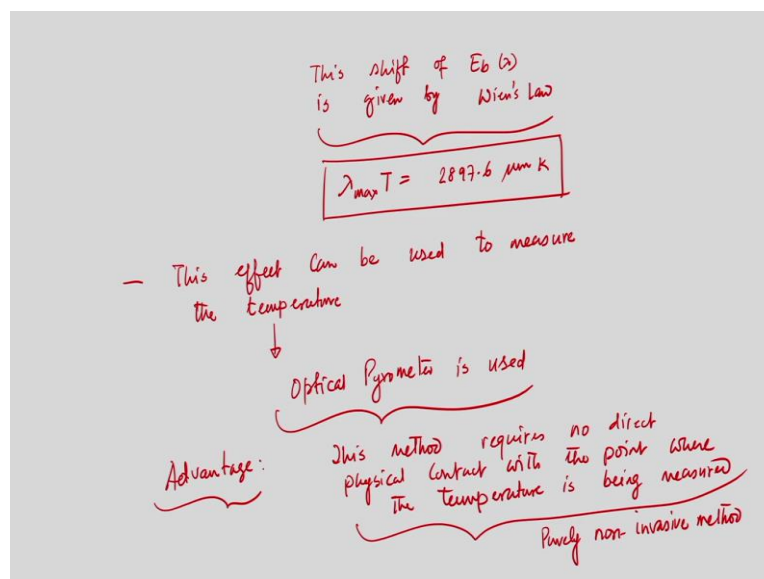 This shift of Eb(λ)
is given by Wien's Law
λmax T = 2897.6 μm K
— This effect can be used to measure
the temperature
↓
Optical Pyrometer is used
Advantage: This method requires no direct
physical contact with the point where
the temperature is being measured
Purely non-invasive method